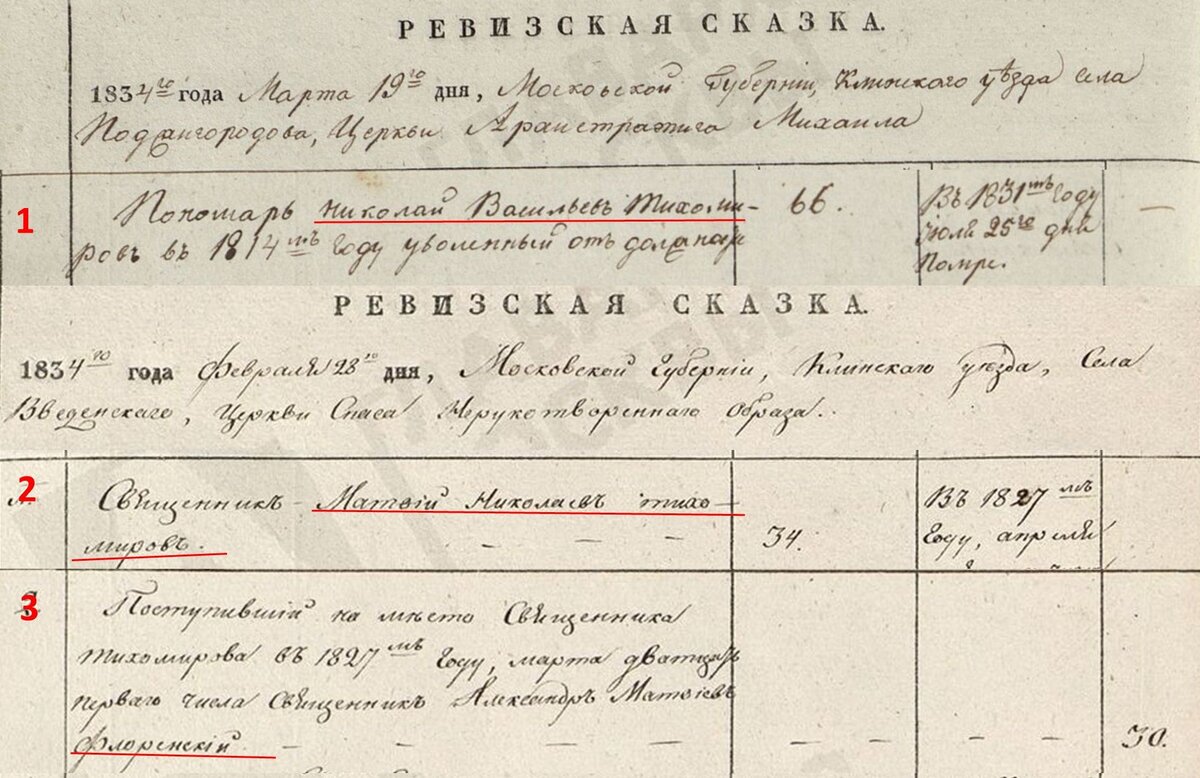 РЕВИЗСКАЯ СКАЗКА.
1834го года Марта 19го дня, Московской Губерніи, Клинскаго уѣзда села
Поджигородова, Церкви Архистратига Михаила
1
Пономарь Николай Васильевъ Тихоми-
66.
Въ 1831мъ Году
ровъ въ 1814мъ Году уволенный отъ должнос
Іюля 25го дня
Помре.
РЕВИЗСКАЯ СКАЗКА.
1834го года Февраля 28го дня, Московской Губерніи, Клинскаго уѣзда, Села
Введенскаго, Церкви Спаса Нерукотвореннаго Образа.
2
Священникъ - Матвій Николаевъ Тихо-
Въ 1827мъ
мировъ. - - - -
34.
Году, апреля
3
Поступившій на мѣсто Священника
Тихомирова въ 1827мъ Году, марта дватцать
перваго числа Священникъ Александръ Матвіевъ
Флоренскій - - - - - - - - -
30.